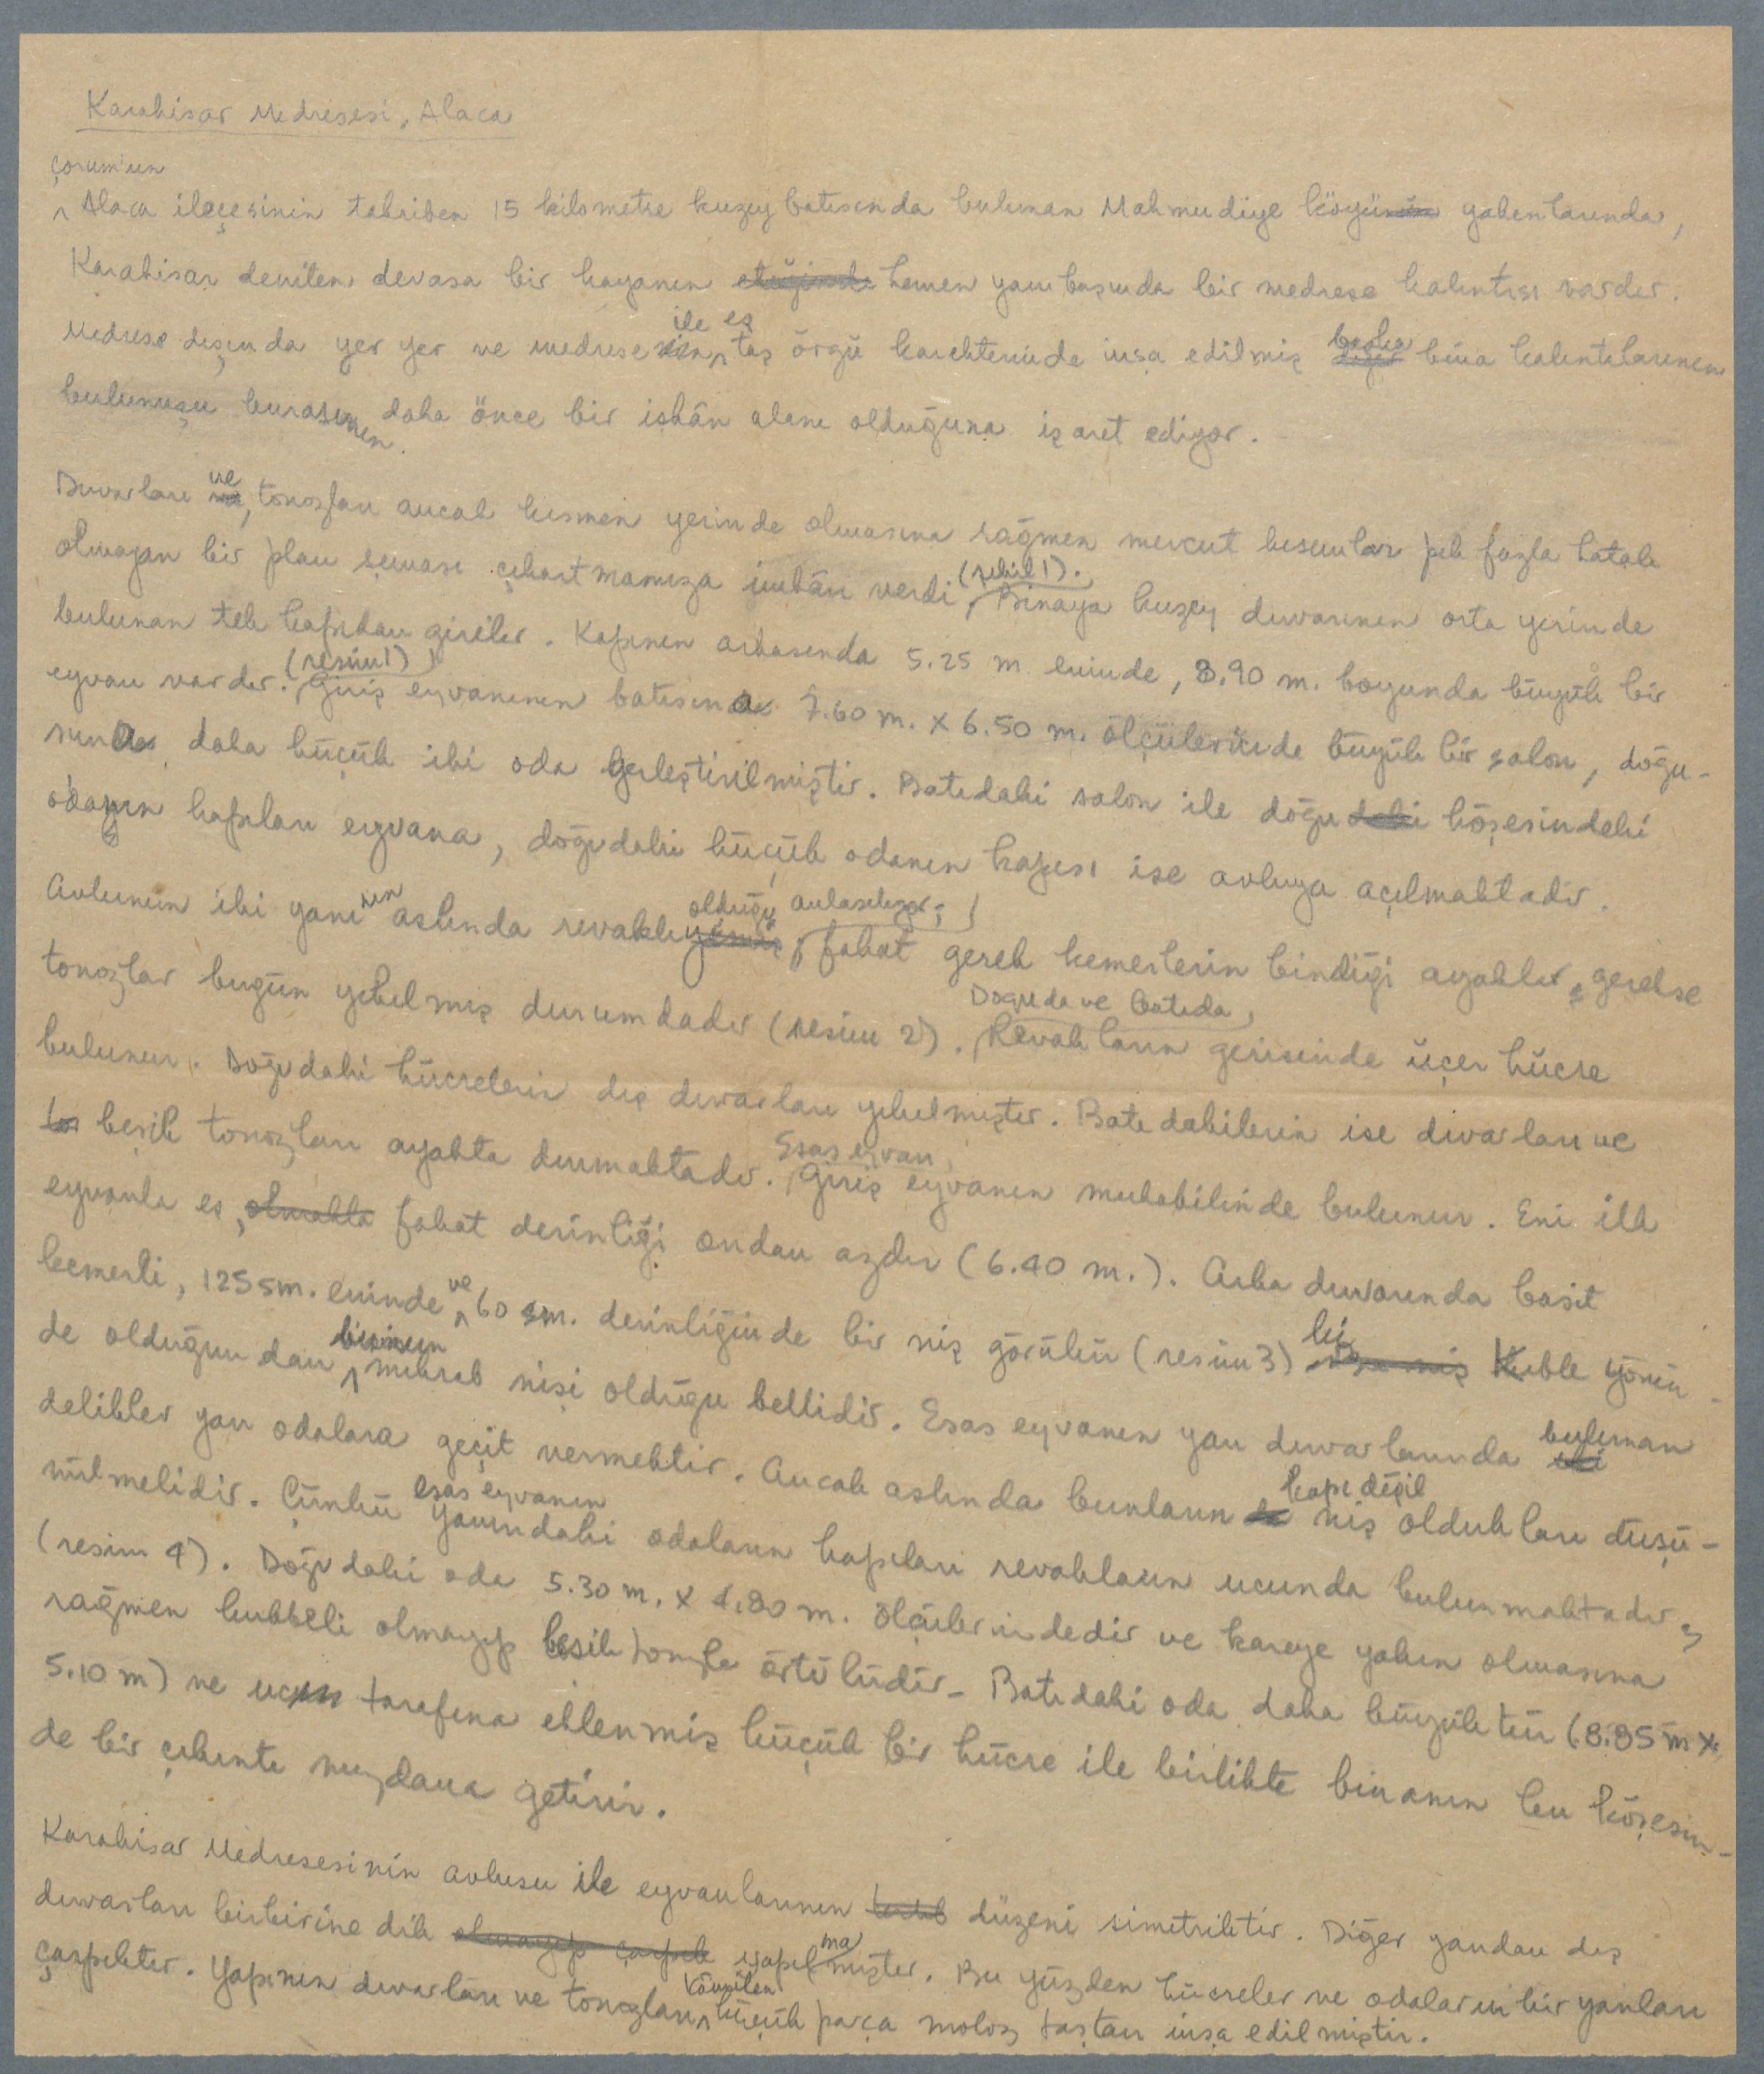 Karahisar Medresesi, Alaca
Çorum'un
Alaca ilçesinin takriben 15 kilometre kuzey batısında bulunan Mahmudiye köyü yakınlarında,
Karahisar denilen devasa bir kayanın hemen yanı başında bir medrese kalıntısı vardır.
Medrese dışında yer yer ve medrese ile eş taş örgü karekterinde inşa edilmiş başka bina kalıntılarının
bulunuşu burasının daha önce bir iskân alanı olduğuna işaret ediyor.
Duvarları ve tonozları ancak kısmen yerinde olmasına rağmen mevcut kısımlar pek fazla hatalı
olmayan bir plan şeması çıkartmamıza imkân verdi (şekil 1). Binaya kuzey duvarının orta yerinde
bulunan tek kapıdan girilir. Kapının arkasında 5.25 m eninde, 8.90 m. boyunda büyük bir
eyvan vardır. (resim 1) Giriş eyvanının batısına 7.60 m. x 6.50 m. ölçülerinde büyük bir salon, doğu-
suna daha küçük iki oda yerleştirilmiştir. Batıdaki salon ile doğu köşesindeki
odanın kapıları eyvana, doğudaki küçük odanın kapısı ise avluya açılmaktadır.
Avlunun iki yanının aslında revaklı olduğu anlaşılıyor; fakat gerek kemerlerin bindiği ayaklar, gerekse
tonozlar bugün yıkılmış durumdadır (resim 2). Doğuda ve batıda, Revakların gerisinde üçer hücre
bulunur. Doğudaki hücrelerin dış duvarları yıkılmıştır. Batıdakilerin ise duvarları ve
beşik tonozları ayakta durmaktadır. Esas eyvan, Giriş eyvanın mukabilinde bulunur. Eni ilk
eyvanla eş, fakat derinliği ondan azdır (6.40 m.). Arka duvarında basit
kemerli, 125 sm. eninde ve 60 sm. derinliğinde bir niş görülür (resim 3) ki Kıble yönün-
de olduğundan bunun mihrab nişi olduğu bellidir. Esas eyvanın yan duvarlarında bulunan
delikler yan odalara geçit vermektir. Ancak aslında bunların kapı değil niş oldukları düşü-
nülmelidir. Çünkü esas eyvanın yanındaki odaların kapıları revakların ucunda bulunmaktadır,
(resim 4). Doğudaki oda 5.30 m. x 4.80 m. ölçülerindedir ve kareye yakın olmasına
rağmen kubbeli olmayıp beşik tonozla örtülüdür. Batıdaki oda daha büyüktür (8.85 m x
5.10 m) ve tarafına eklenmiş küçük bir hücre ile birlikte binanın bu köşesin-
de bir çıkıntı meydana getirir.
Karahisar Medresesinin avlusu ile eyvanlarının düzeni simetriktir. Diğer yandan dış
duvarları birbirine dik yapılmamıştır. Bu yüzden hücreler ve odaların bir yanları
çarpıktır. Yapının duvarları ve tonozları küçük parça moloz taştan inşa edilmiştir.